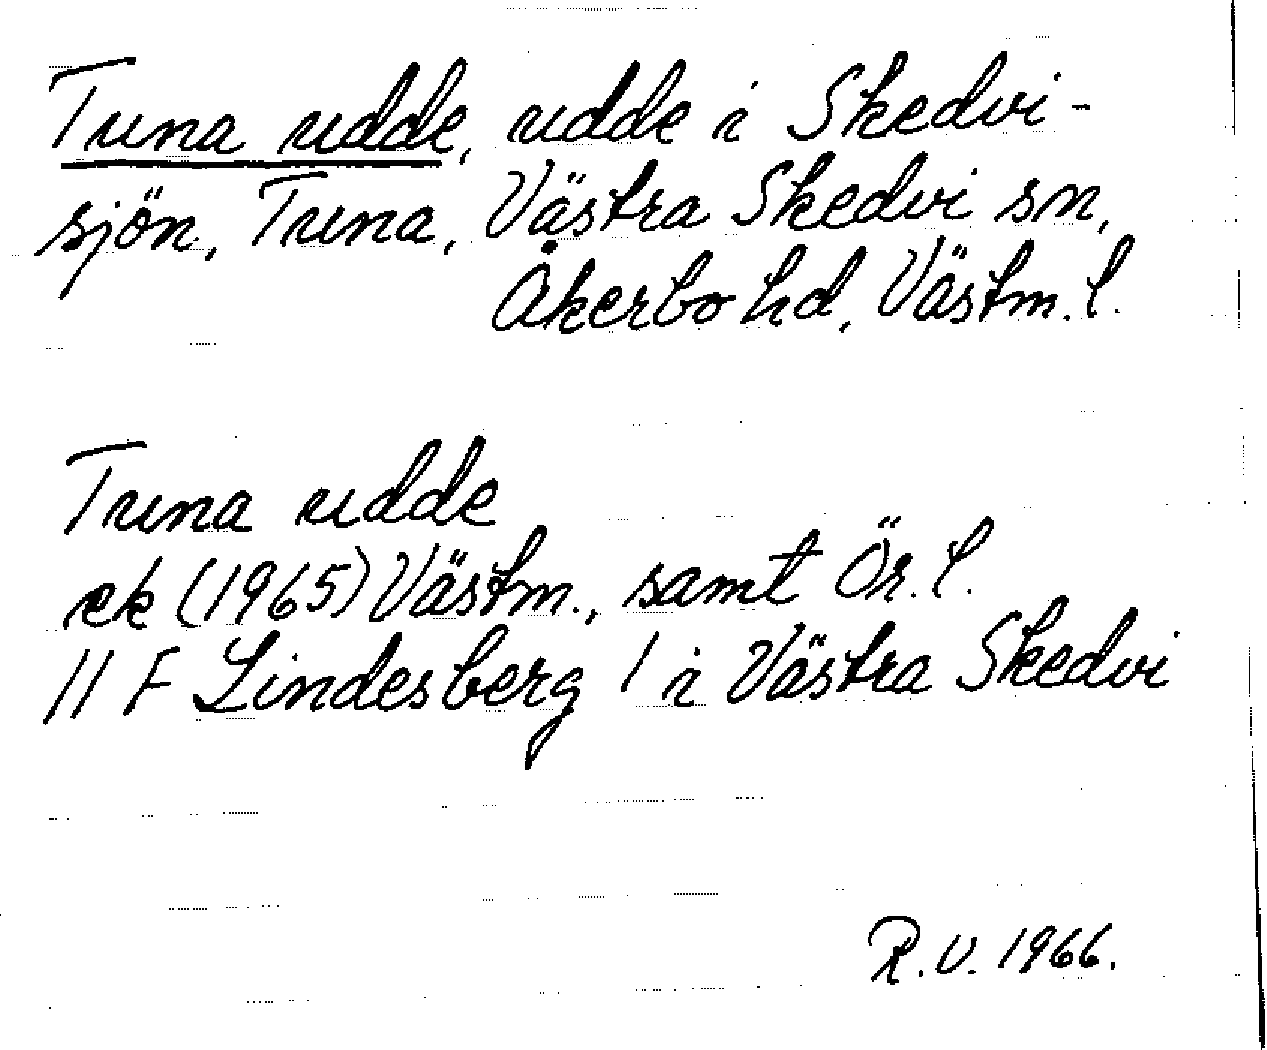 Tuna udde, udde i Skedvi-
sjön, Tuna, Västra Skedvi sn,
Åkerbo hd, Västm. l.
Tuna udde
ek (1965) Västm., samt Ör. l.
11 F Lindesberg 1 i Västra Skedvi
R.V. 1966.